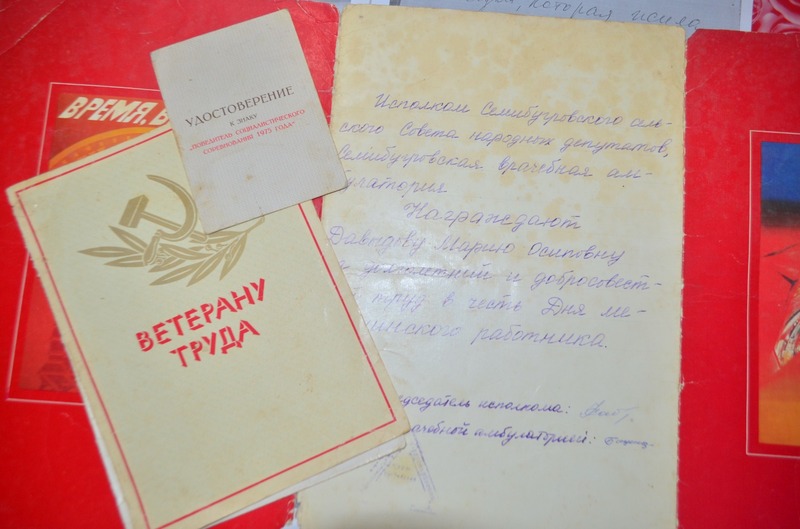 которая
ВРЕМЯ, В
УДОСТОВЕРЕНИЕ
К ЗНАКУ
„ПОБЕДИТЕЛЬ СОЦИАЛИСТИЧЕСКОГО
СОРЕВНОВАНИЯ 1975 ГОДА“
ВЕТЕРАНУ
ТРУДА
Исполком Семибугровского ель-
ского Совета народных депутатов,
Семибугровская врачебная ам-
улатория
Награждают
Давыдову Марию Осиповну
и добросовест-
труд в честь Дня ме-
инского работника.
едседатель исполкома:
ачебной амбулаторией: